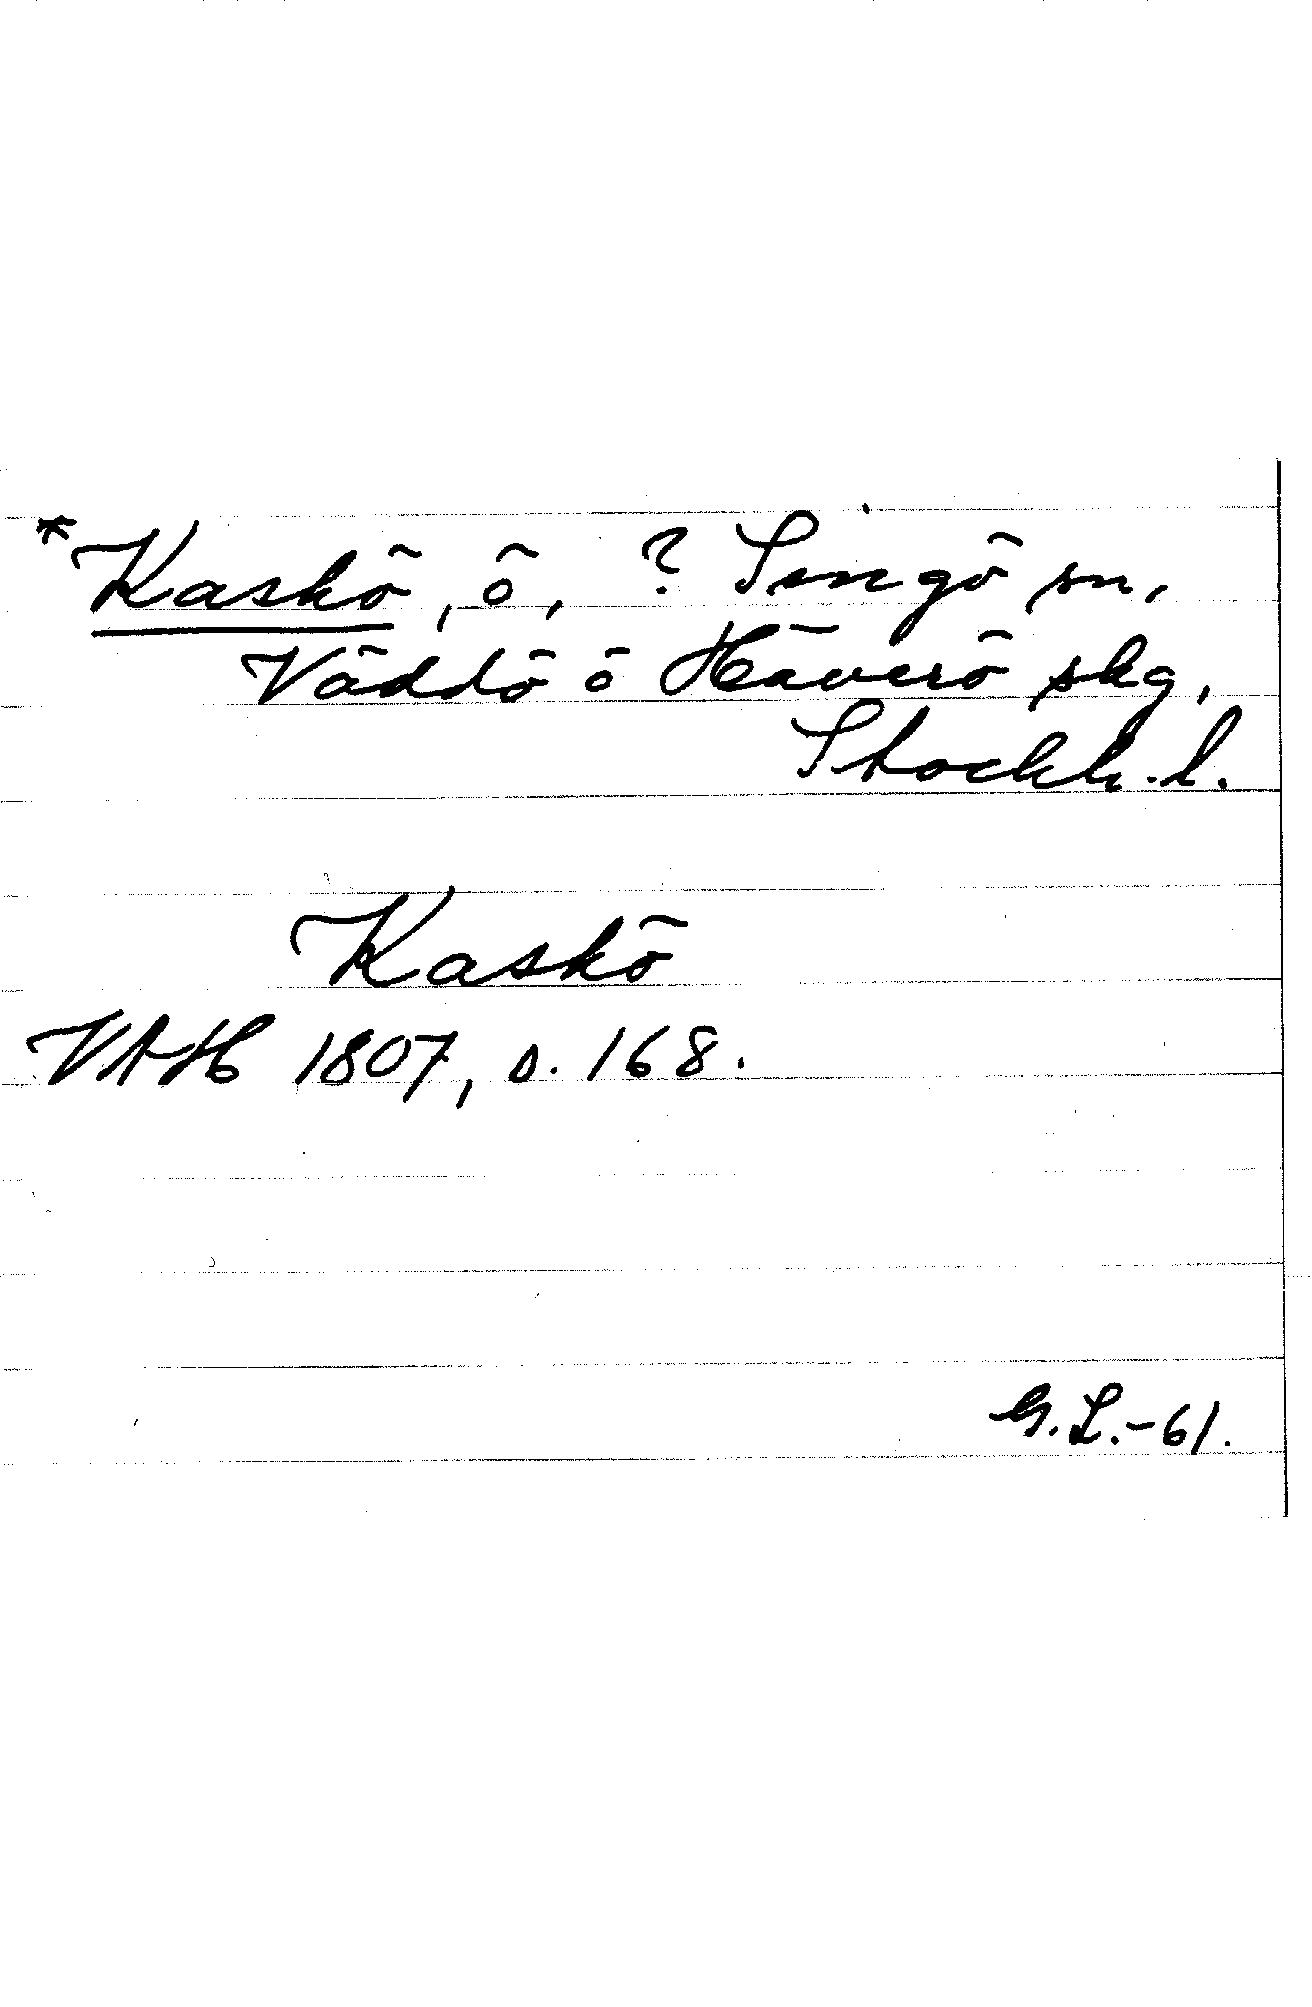 *Kaskö, ö, ? Singö sn,
Väddö o Häverö skg,
Stockh. l.
Kaskö
VAH 1807, s. 168.
G.L.-61.